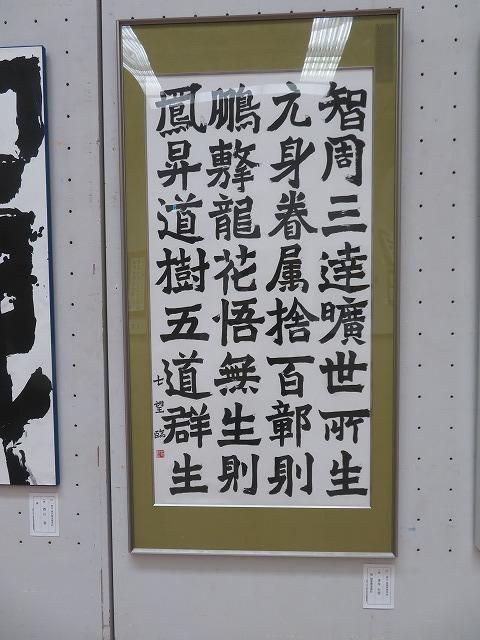 智周三達曠世所生
元身眷属捨百鄣則
鵬擊龍花悟無生則
鳳昇道樹五道群生
望臨